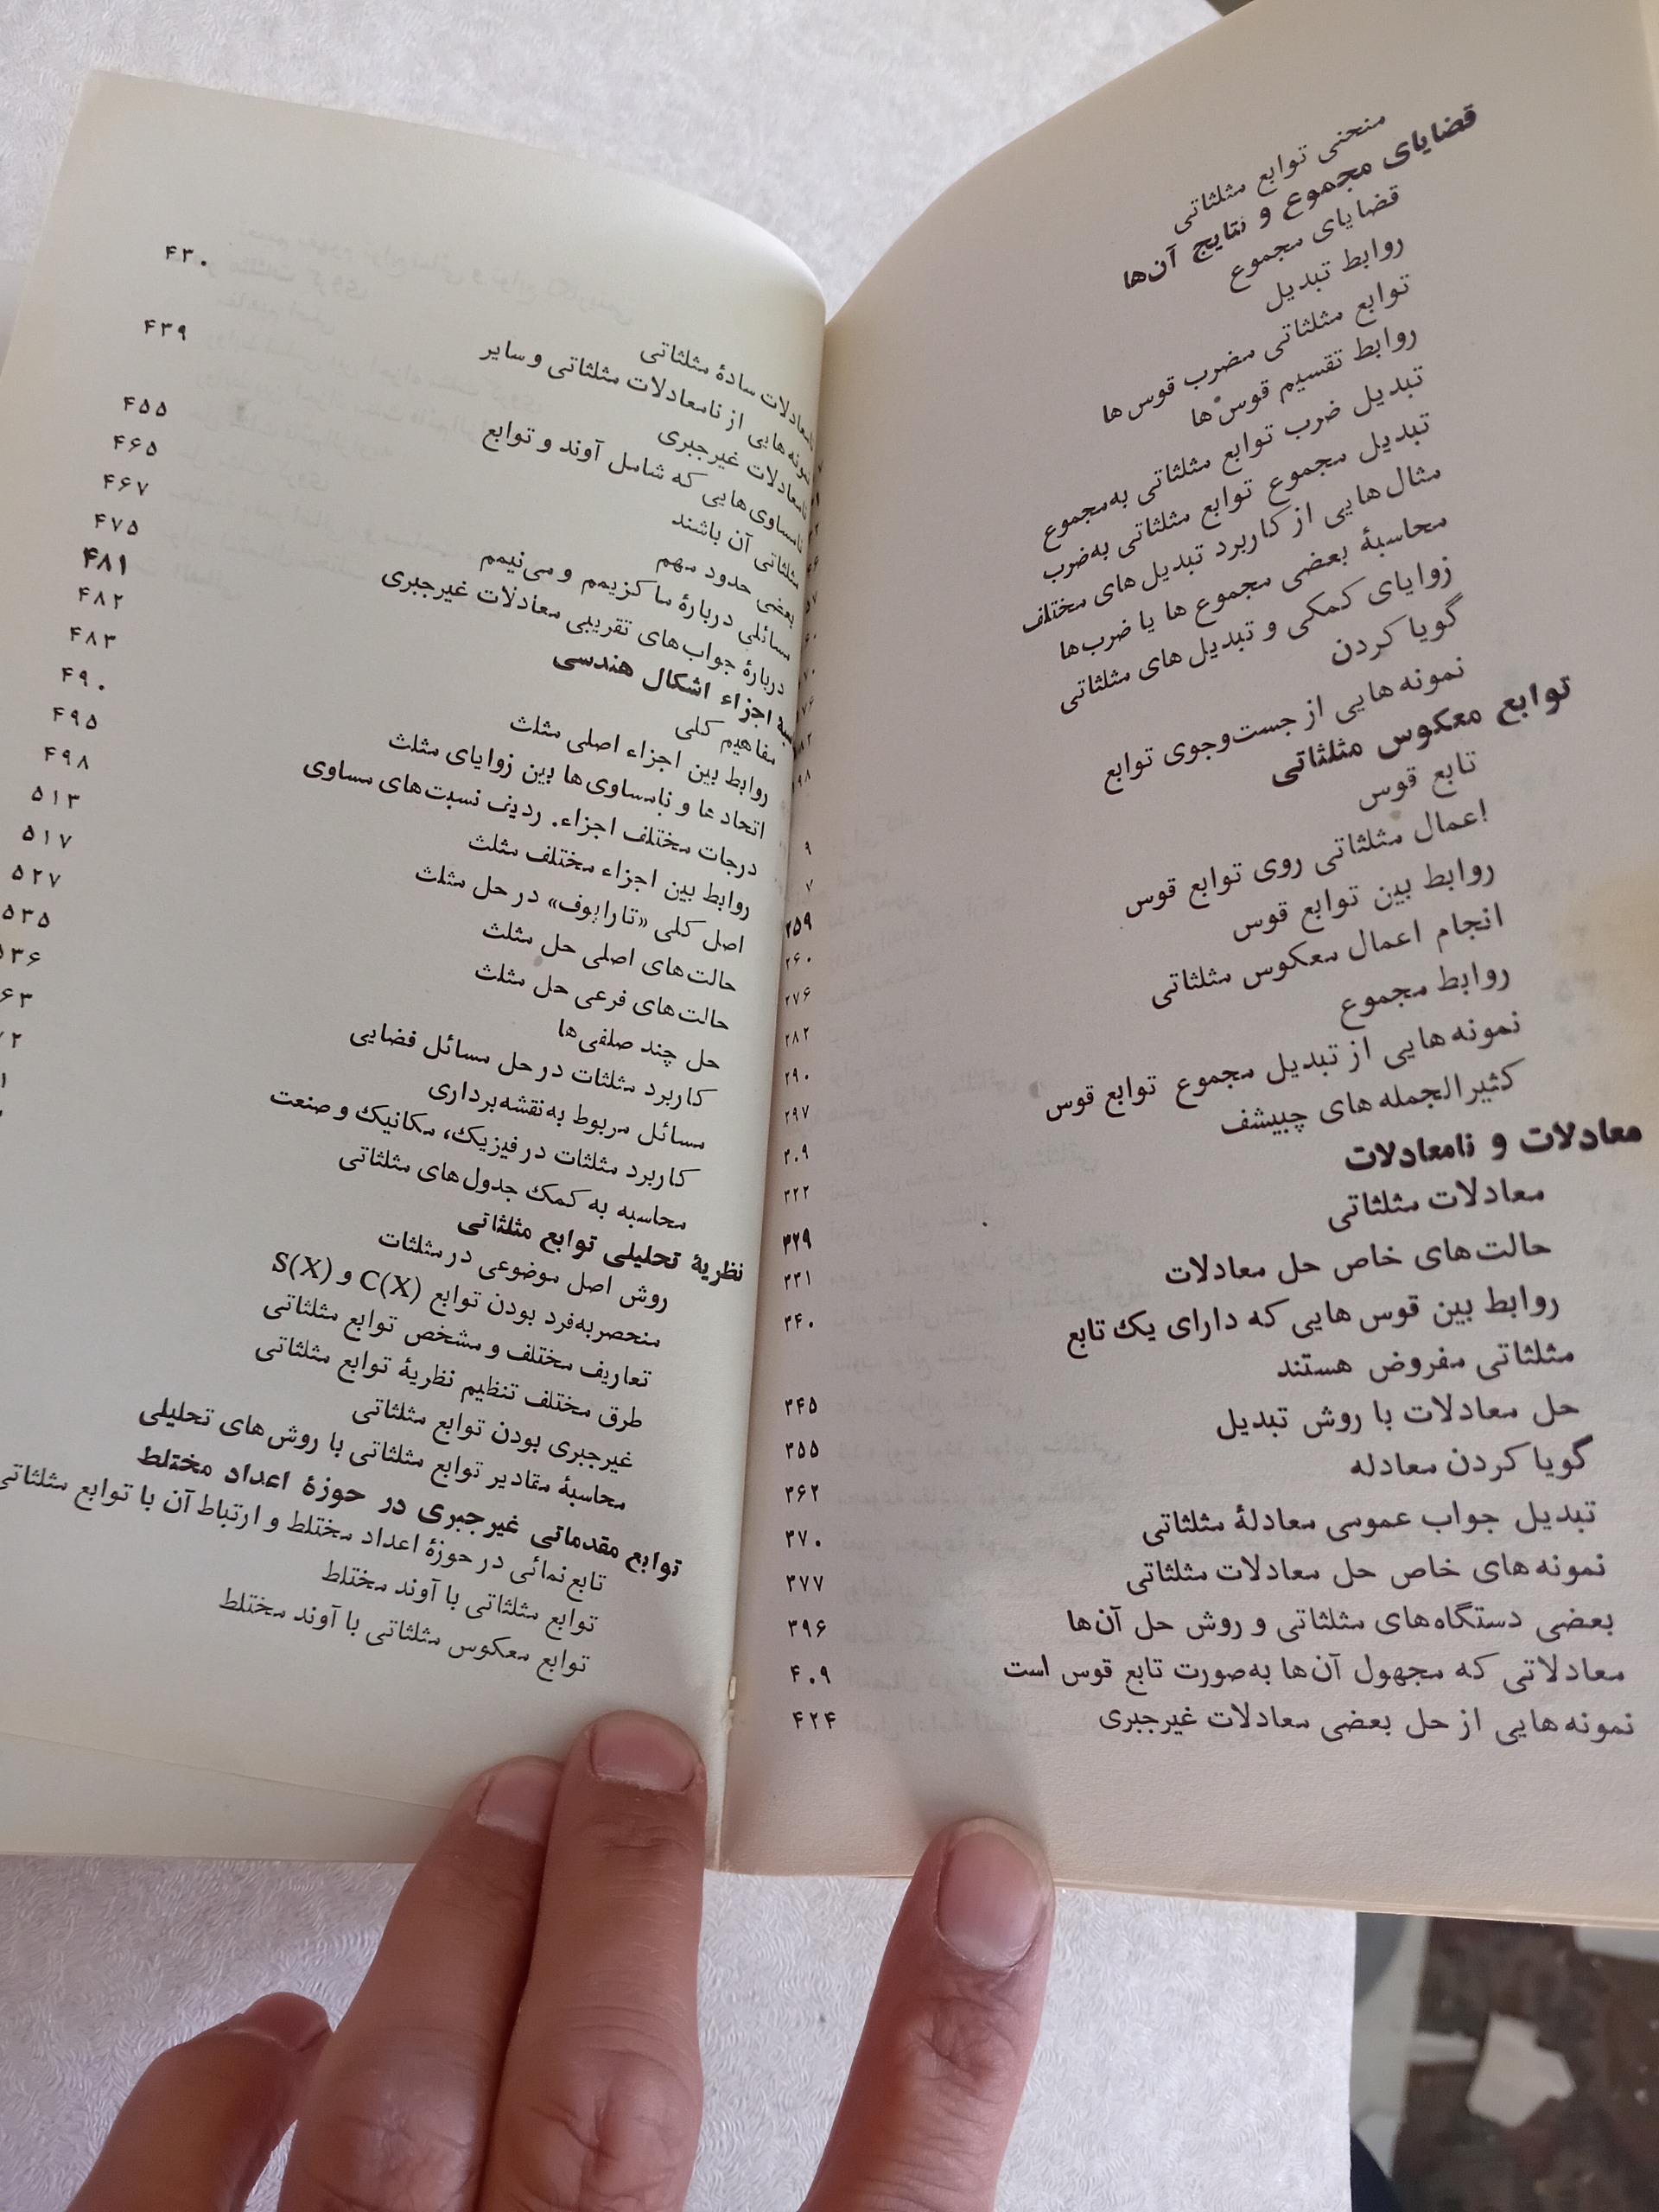 منحنی توابع مثلثاتی
قضایای مجموع و نتایج آن‌ها
قضایای مجموع
روابط تبدیل
توابع مثلثاتی مضرب قوس ها
روابط تقسیم قوس ها
تبدیل ضرب توابع مثلثاتی به‌مجموع
تبدیل مجموع توابع مثلثاتی به‌ضرب
مثال‌هایی از کاربرد تبدیل های مختلف
محاسبهٔ بعضی مجموع ها یا ضرب‌ها
زوایای کمکی و تبدیل های مثلثاتی
گویا کردن
نمونه هایی از جست‌وجوی توابع
توابع معکوس مثلثاتی ۲۵۹
تابع قوس ۲۶۰
اعمال مثلثاتی روی توابع قوس ۲۷۶
روابط بین توابع قوس ۲۸۲
انجام اعمال معکوس مثلثاتی ۲۹۰
روابط مجموع ۲۹۷
نمونه هایی از تبدیل مجموع توابع قوس ۳۰۹
کثیرالجمله های چبیشف ۳۲۲
معادلات و نامعادلات ۳۲۹
معادلات مثلثاتی ۳۳۱
حالت‌های خاص حل معادلات ۳۴۰
روابط بین قوس هایی که دارای یک تابع
مثلثاتی مفروض هستند ۳۴۵
حل معادلات با روش تبدیل ۳۵۵
گویا کردن معادله ۳۶۲
تبدیل جواب عمومی معادلهٔ مثلثاتی ۳۷۰
نمونه های خاص حل معادلات مثلثاتی ۳۷۷
بعضی دستگاه‌های مثلثاتی و روش حل آن‌ها ۳۹۶
معادلاتی که مجهول آن‌ها به‌صورت تابع قوس است ۴۰۹
نمونه هایی از حل بعضی معادلات غیرجبری ۴۲۴
نامعادلات سادهٔ مثلثاتی ۴۳۰
نمونه هایی از نامعادلات مثلثاتی و سایر
نامعادلات غیرجبری ۴۳۹
نامساوی هایی که شامل آوند و توابع
مثلثاتی آن باشند ۴۵۵
بعضی حدود مهم ۴۶۵
مسائلی دربارهٔ ماکزیمم و می‌نیمم ۴۶۷
دربارهٔ جواب‌های تقریبی معادلات غیرجبری ۴۷۵
اجزاء اشکال هندسی ۴۸۱
مفاهیم کلی ۴۸۲
روابط بین اجزاء اصلی مثلث ۴۸۳
اتحاد ها و نامساوی‌ها بین زوایای مثلث ۴۹۰
درجات مختلف اجزاء. ردیف نسبت‌های مساوی ۴۹۵
روابط بین اجزاء مختلف مثلث ۴۹۸
اصل کلی «تاراپوف» در حل مثلث ۵۱۳
حالت‌های اصلی حل مثلث ۵۱۷
حالت‌های فرعی حل مثلث ۵۲۷
حل چند ضلفی‌ها ۵۳۵
کاربرد مثلثات در حل مسائل فضایی ۵۳۶
مسائل مربوط به‌نقشه‌برداری
کاربرد مثلثات در فیزیک، مکانیک و صنعت
محاسبه به کمک جدول‌های مثلثاتی
نظریهٔ تحلیلی توابع مثلثاتی
روش اصل موضوعی در مثلثات
منحصربه‌فرد بودن توابع C(X) و S(X)
تعاریف مختلف و مشخص توابع مثلثاتی
طرق مختلف تنظیم نظریهٔ توابع مثلثاتی
غیرجبری بودن توابع مثلثاتی
محاسبهٔ مقادیر توابع مثلثاتی با روش‌های تحلیلی
توابع مقدماتی غیرجبری در حوزهٔ اعداد مختلط
تابع نمائی در حوزهٔ اعداد مختلط و ارتباط آن با توابع مثلثاتی
توابع مثلثاتی با آوند مختلط
توابع معکوس مثلثاتی با آوند مختلط